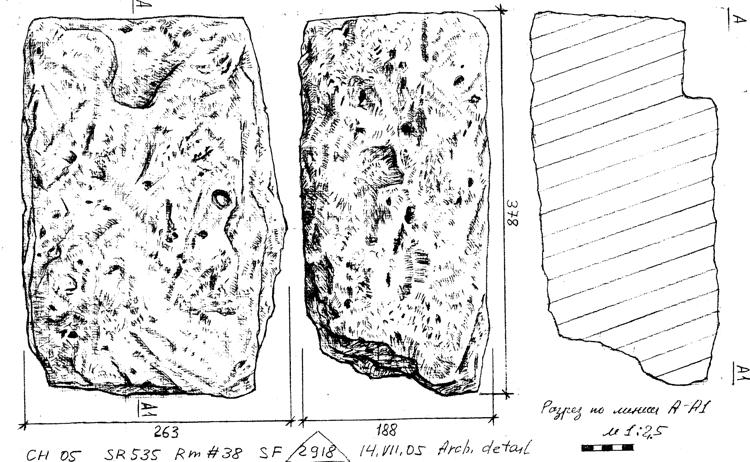 A
A
378
A1
A1
263
188
Разрез по линии А-А1
м 1:2,5
CH 05 SR 535 Rm #38 SF 2918 14.VII.05 Arch. detail